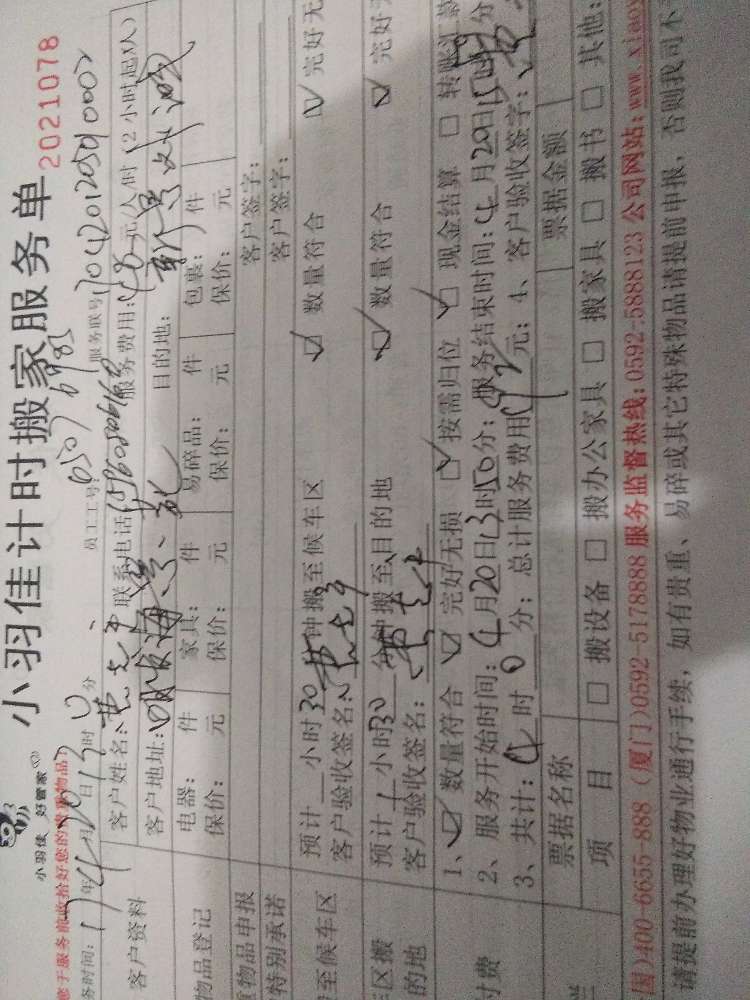 小羽佳计时搬家服务单
2021078
小羽佳 好管家
您于服务前收拾好您的贵重物品
务时间:17年4月20日13时0分 员工工号: 服务联号:1704201205010002
客户资料
客户姓名: 联系电话: 服务费用:48元/人/时(2小时起/人)
客户地址: 目的地:
物品登记
电器: 件 家具: 件 易碎品: 件 包裹: 件
保价: 元 保价: 元 保价: 元 保价: 元
物品申报 客户签字:
特别承诺 客户签字:
至候车区
预计 小时30分钟搬至候车区 数量符合 完好无
客户验收签名:
区搬
的地
预计1小时30分钟搬至目的地 数量符合 完好无
客户验收签名:
付费
1、 数量符合 完好无损 按需归位 现金结算 转账汇款
2、服务开始时间:4月20日13时50分;服务结束时间:4月20日 时 分
3、共计: 时0分;总计服务费用 元;4、客户验收签字:
票据名称 票据金额
项目 搬设备 搬办公家具 搬家具 搬书 其他:
国)400-6655-888 (厦门)0592-5178888 服务监督热线:0592-5888123 公司网站:www.xiaoy
请提前办理好物业通行手续,如有贵重、易碎或其它特殊物品请提前申报,否则我司不